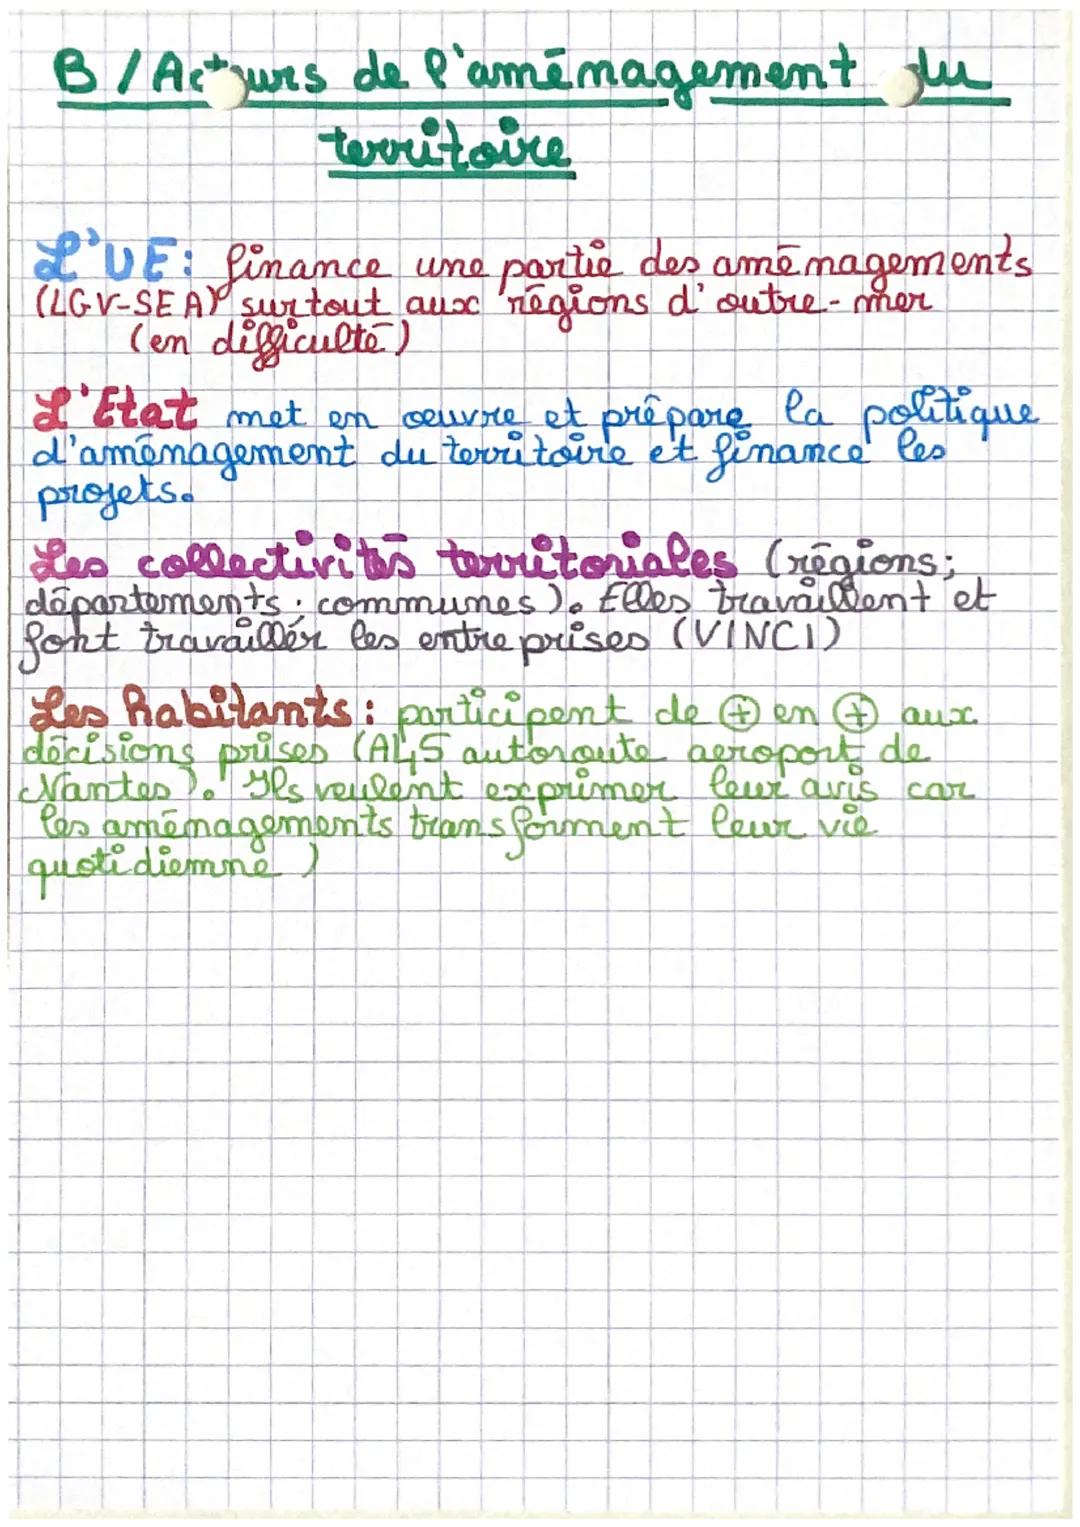 B / Acteurs de l'aménagement du
territoire
L'UE : finance une partie des aménagements
(LGV-SEA) surtout aux régions d'outre-mer
(en difficulté)
L'Etat met en œuvre et prépare la politique
d'aménagement du territoire et finance les
projets.
Les collectivités territoriales (régions;
départements. communes). Elles travaillent et
font travailler les entreprises (VINCI)
Les habitants : participent de ⊕ en ⊕ aux
décisions prises (A45 autoroute aeroport de
Nantes). Ils veulent exprimer leur avis car
les aménagements transforment leur vie
quotidienne )